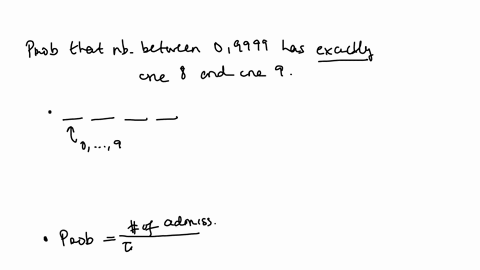 Prob that nb. between 0,9999 has exactly
one 8 and one 9.
0,...,9
• Prob = # of admiss.
τ